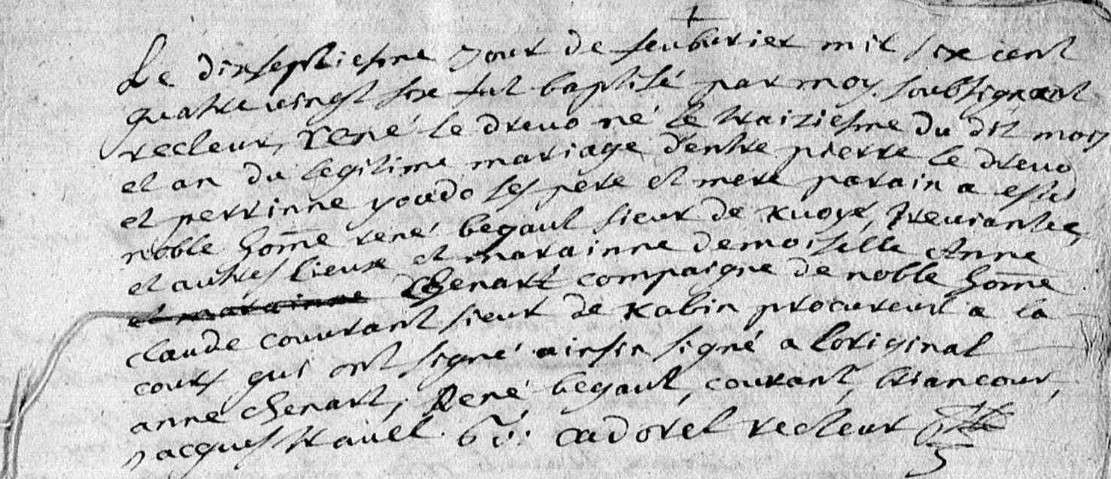 Le dixseptiesme jour de feubvrier mil six cent
quatre vingt six fut baptisé par moy soubsignant
recteur, rené le drevo né le traiziesme du dit mois
et an du legitime mariage d'entre pierre le drevo
et perrinne youdo ses pere et mere parain a esté
noble home rené begaul sieur de
et autres lieux et marainne demoiselle Anne
et marainne Chenart compaigne de noble home
claude couurant sieur de Kabin procureur a la
cours qui ont signé ainsin signé a loriginal
anne chenart, René begaul, courant, briancour,
jacques cadoret recteur